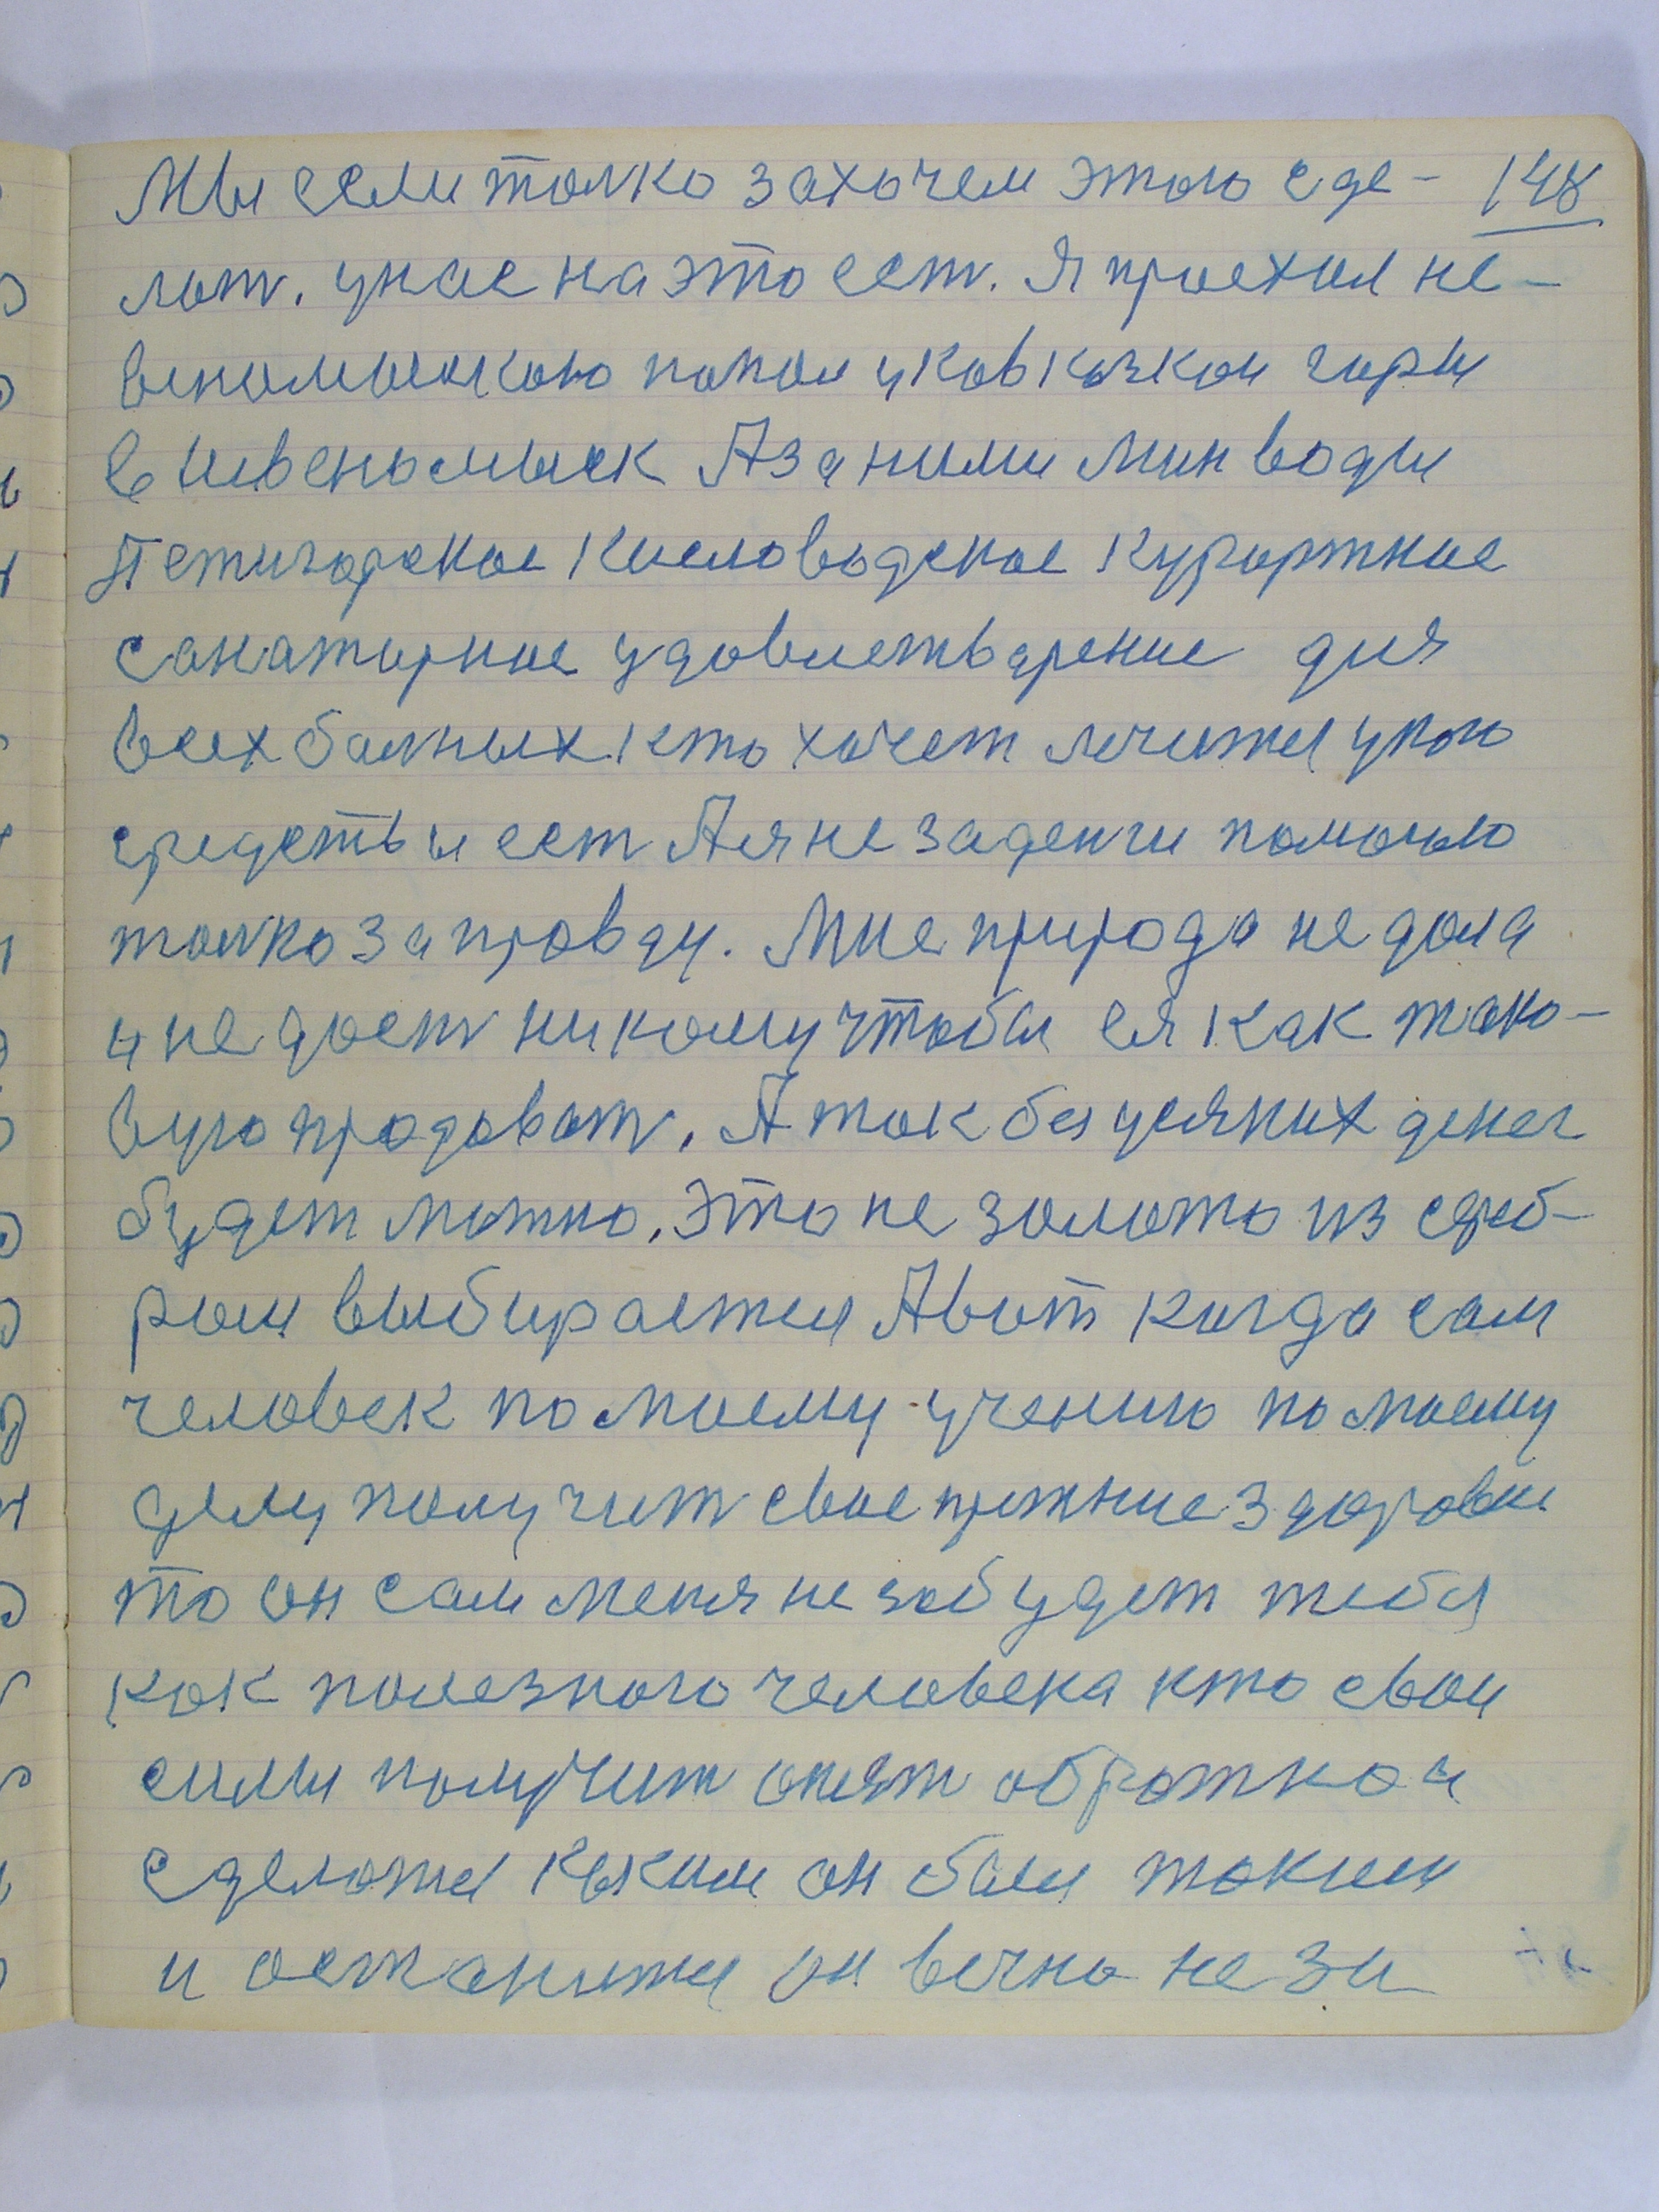 Мы если толко захочем этого сде- 148
лат. унас наэто ест. Я проехал не-
виномыскою попал укавказкои горы
в шивеномыск А за ними Мин воды
Петигорское Кисловодское Курортное
санаторное удовлетварение для
всех болных кто хочет лечится укою
средствы ест А я не заденги помогаю
толко за правду. Мне природа не дала
и не даст никому чтобы ея как тако-
вую продават. А так без усяких денег
будет можно. Это не золото из среб-
ром выбирается А вот когда сам
человек по моему учению по моему
делу получит свое прежние здоровие
то он сам меня не забудет тебя
как полезного человека кто свои
силы получит опят обратно и
сделатся каким он был таким
и останится он вечно не за